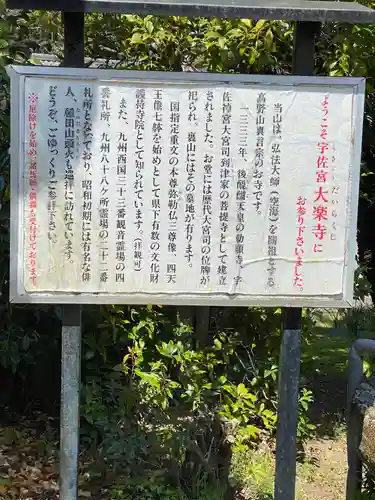 ようこそ宇佐宮大楽寺に
だいらくじ
お参り下さいました。
当山は、弘法大師(空海)を開祖とする
高野山真言宗のお寺です。
一三三三年、後醍醐天皇の勅願寺、宇
佐神宮大宮司到津家の菩提寺として建立
されました。お堂には歴代大宮司の位牌が
祀られ、裏山にはその墓地が有ります。
国指定重文の本尊弥勒仏三尊像、四天
王像七躰を始めとして県下有数の文化財
護持寺院として知られています。(拝観可)
また、九州西国三十三番観音霊場の四
番札所、九州八十八ヶ所霊場の二十二番
札所となっており、昭和初期には有名な俳
人、種田山頭火も巡拝に訪れています。
たねださんとうか
どうぞ、ごゆっくりご参拝下さい。
※厄除けを始め、諸祈願・供養も受付けております。